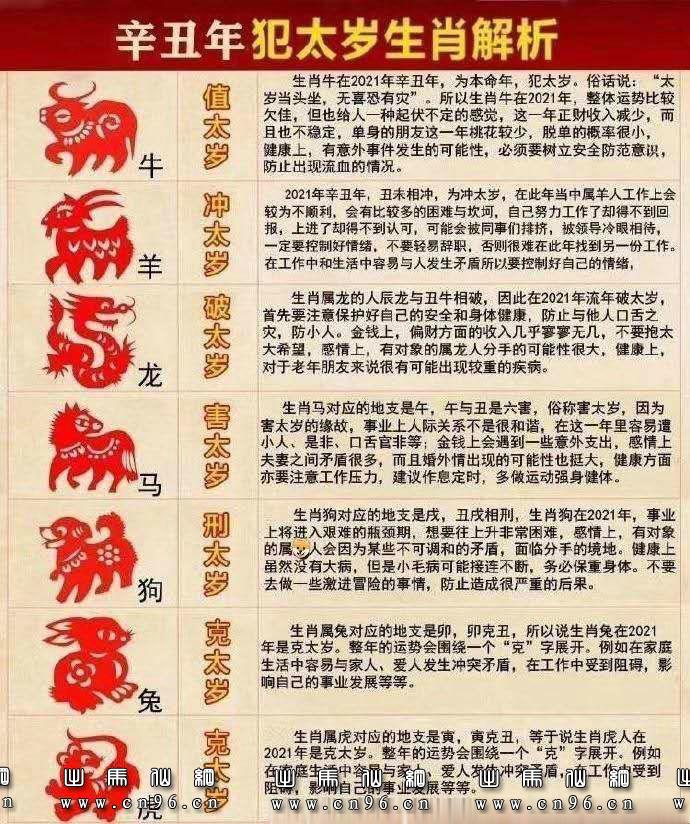 辛丑年犯太岁生肖解析
牛
值太岁
生肖牛在2021年辛丑年，为本命年，犯太岁。俗话说：“太
岁当头坐，无喜恐有灾”。所以生肖牛在2021年，整体运势比较
欠佳，但也给人一种起伏不定的感觉，这一年正财收入减少，而
且也不稳定，单身的朋友这一年桃花较少，脱单的概率很小，
健康上，有意外事件发生的可能性，必须要树立安全防范意识，
防止出现流血的情况。
羊
冲太岁
2021年辛丑年，丑未相冲，为冲太岁，在此年当中属羊人工作上会
较为不顺利，会有比较多的困难与坎坷，自己努力工作了却得不到回
报，上进了却得不到认可，可能会被同事们排挤，被领导冷眼相待，
一定要控制好情绪，不要轻易辞职，否则很难在此年找到另一份工作。
在工作中和生活中容易与人发生矛盾所以要控制好自己的情绪，
龙
破太岁
生肖属龙的人辰龙与丑牛相破，因此在2021年流年破太岁，
首先要注意保护好自己的安全和身体健康，防止与他人口舌之
灾，防小人。金钱上，偏财方面的收入几乎寥寥无几，不要抱太
大希望，感情上，有对象的属龙人分手的可能性很大，健康上，
对于老年朋友来说很有可能出现较重的疾病。
马
害太岁
生肖马对应的地支是午，午与丑是六害，俗称害太岁，因为
害太岁的缘故，事业上人际关系不是很和谐，在这一年里容易遭
小人、是非、口舌官非等；金钱上会遇到一些意外支出，感情上
夫妻之间矛盾很多，而且婚外情出现的可能性也挺大，健康方面
亦要注意工作压力，建议作息定时，多做运动强身健体。
狗
刑太岁
生肖狗对应的地支是戌，丑戌相刑，生肖狗在2021年，事业
上将进入艰难的瓶颈期，想要往上升非常困难，感情上，有对象
的属人会因为某些不可调和的矛盾，面临分手的境地。健康上
虽然没有大病，但是小毛病可能接连不断，务必保重身体。不要
去做一些激进冒险的事情，防止造成很严重的后果。
兔
克太岁
生肖属兔对应的地支是卯，卯克丑，所以说生肖兔在2021
年是克太岁。整年的运势会围绕一个“克”字展开。例如在家庭
生活中容易与家人、爱人发生冲突矛盾，在工作中受到阻碍，影
响自己的事业发展等等。
虎
克太岁
生肖属虎对应的地支是寅，寅克丑，等于说生肖虎人在
2021年是克太岁。整年的运势会围绕一个“克”字展开。例如
在家庭生活中容易与家人、爱人发生冲突矛盾，在工作中受到
阻碍，影响自己的事业发展等等。
www.cn96.cn
www.cn96.cn
www.cn96.cn